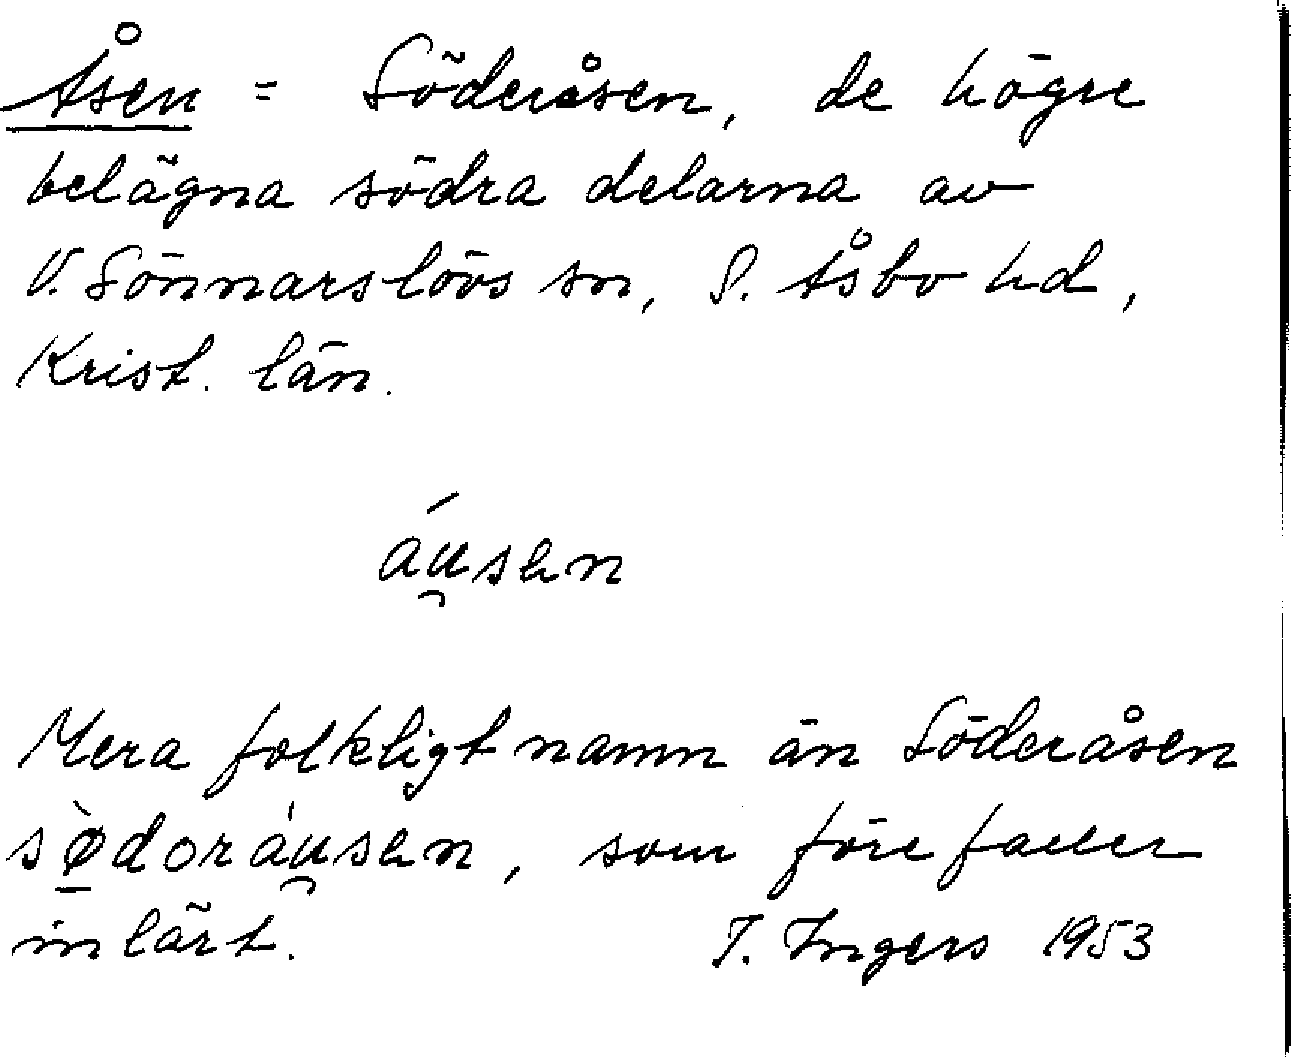 Åsen = Söderåsen, de högre
belägna södra delarna av
V. Sönnarslövs sn, S. Åsbo hd,
Krist. län.
áu̯sen
Mera folkligt namn än Söderåsen
sø̠̀doráu̯sen, som förefaller
inlärt. I. Ingers 1953